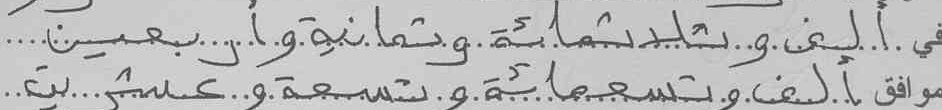 في ألف و ثلاثمائة و ثمانية و أربعين
موافق ألف و تسعمائة و تسعة و عشرين